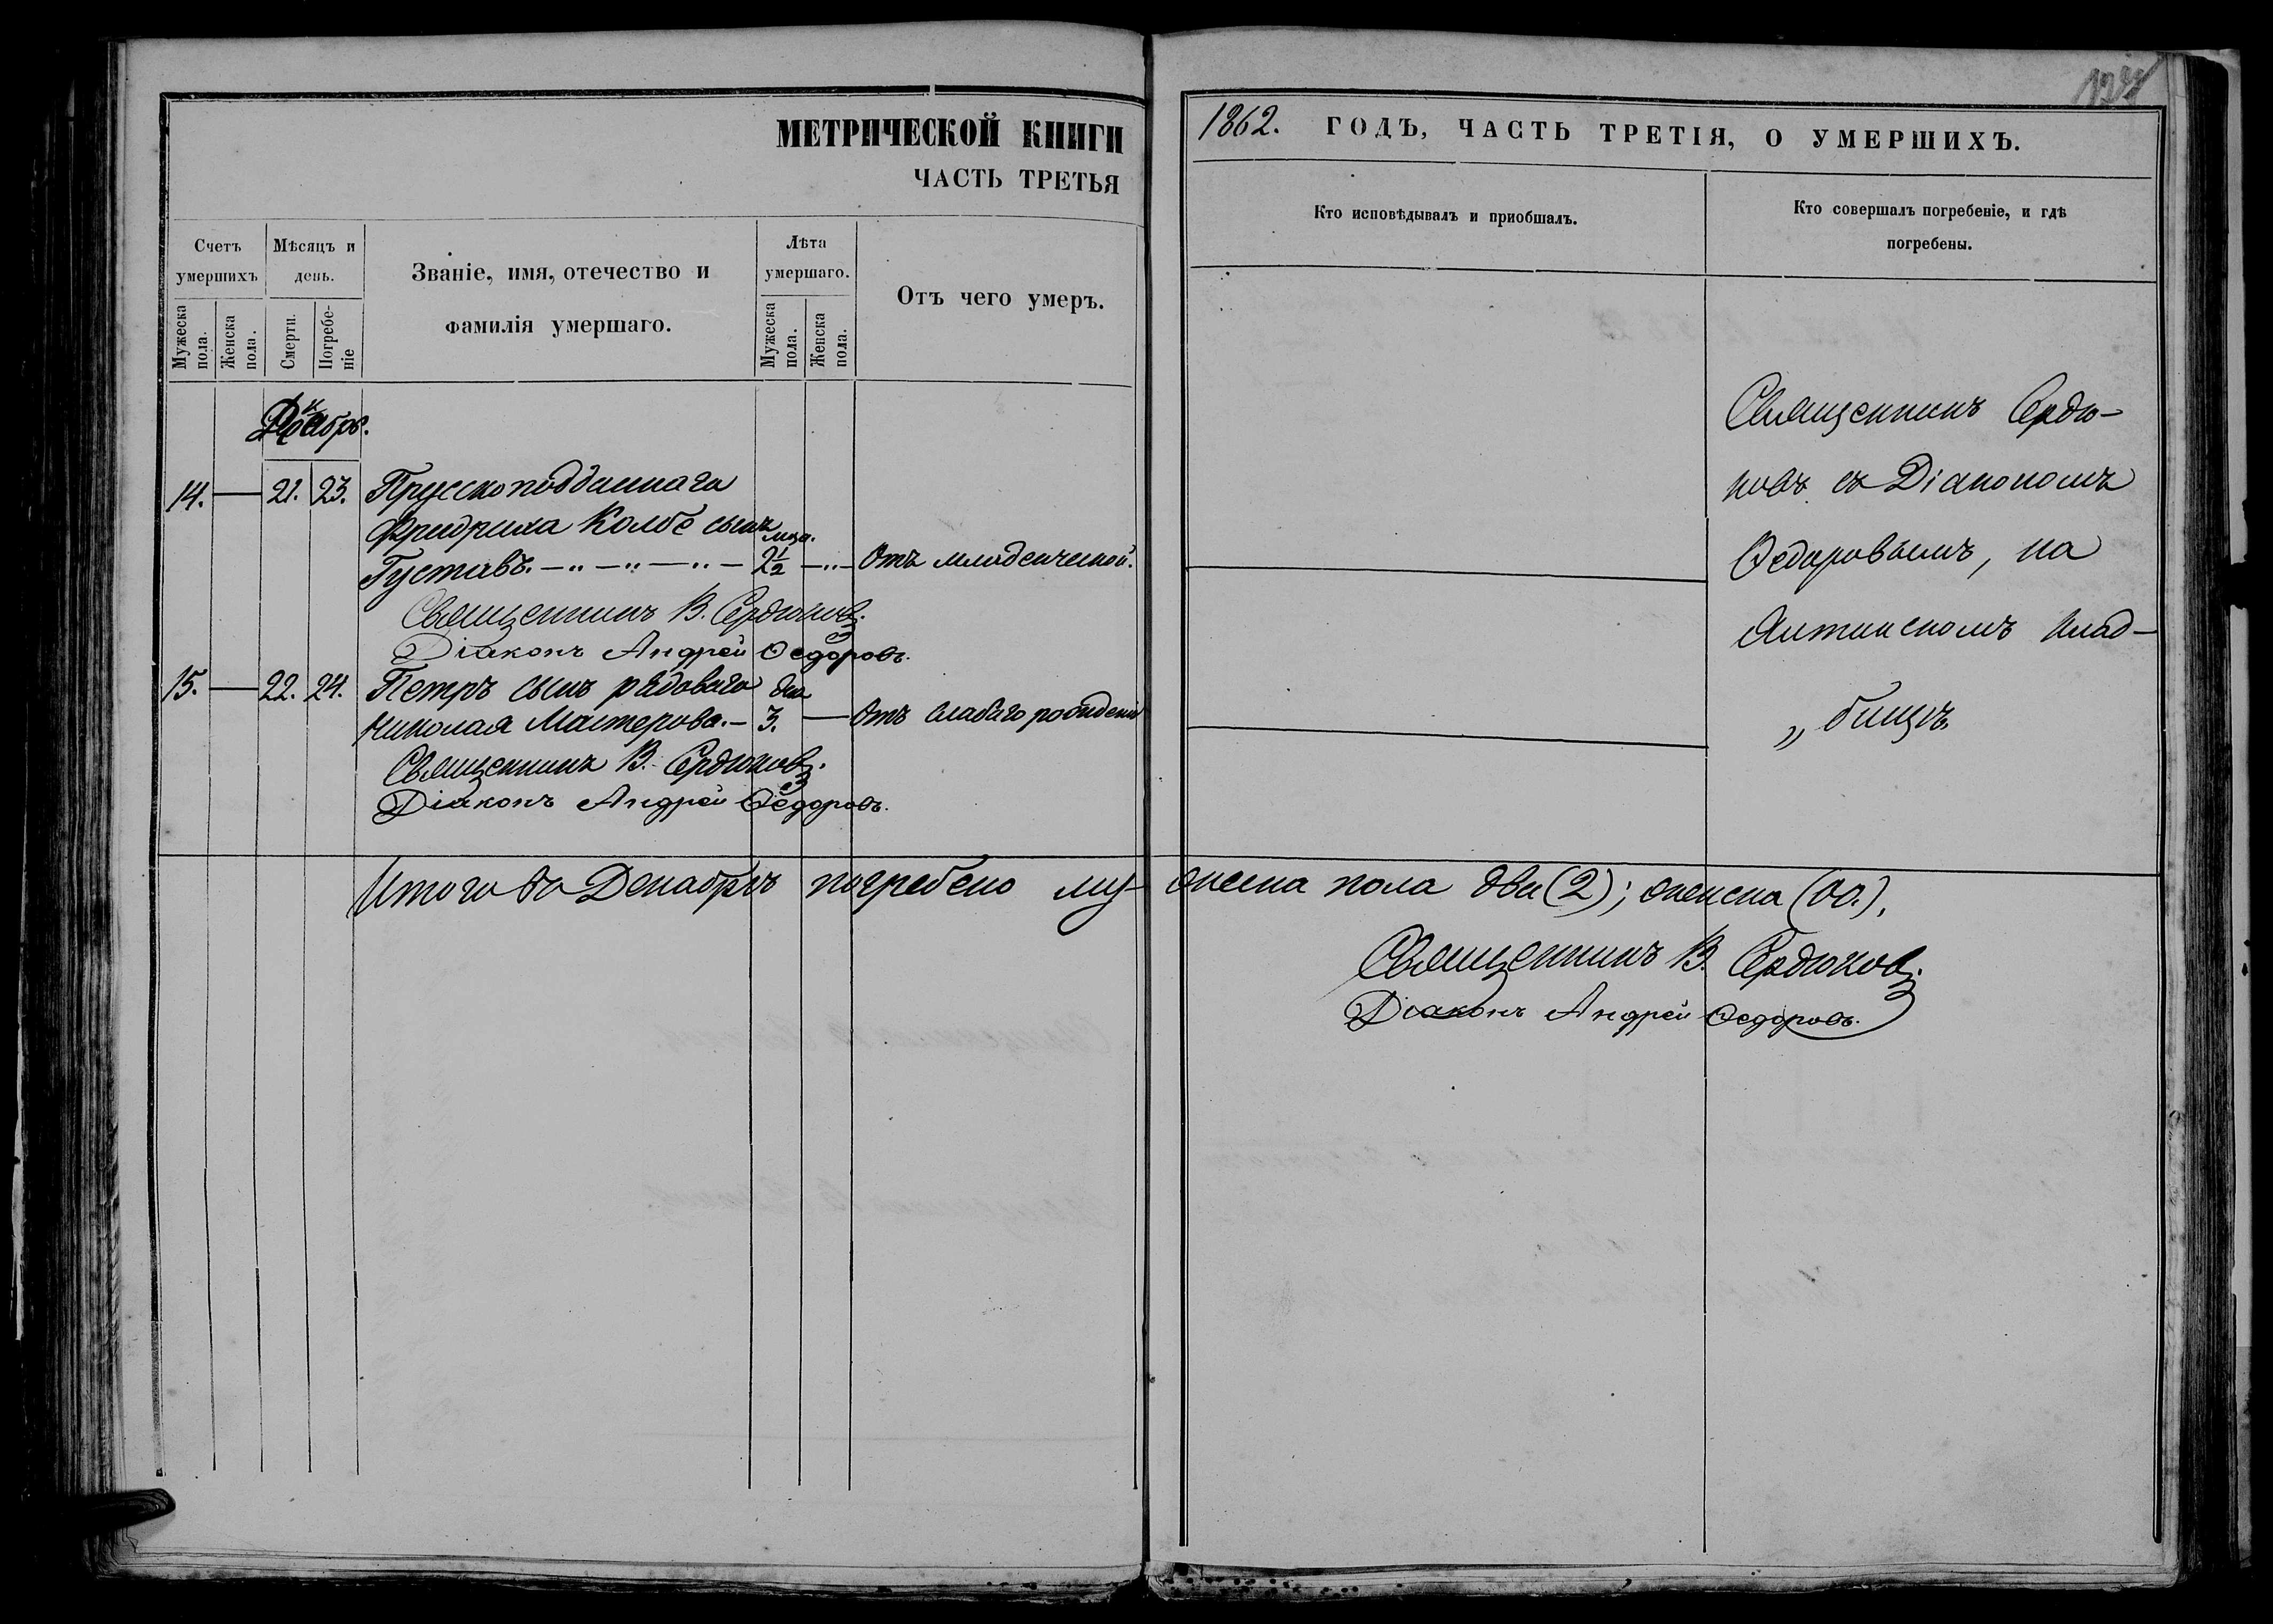 124
МЕТРИЧЕСКОЙ КНИГИ
ЧАСТЬ ТРЕТЬЯ
Счетъ умершихъ
Мѣсяцъ и день.
Званіе, имя, отечество и фамилія умершаго.
Лѣта умершаго.
Отъ чего умеръ.
Мужеска пола.
Женска пола.
Смерти.
Погребеніе
Мужеска пола.
Женска пола.
Декабрь.
14. — 21. 23. Прусскоподданнаго
Фридриха Колбе сынъ мца.
Густавъ. — „ — „ — „ — 2½ — „ — Отъ младенческой.
Священникъ В. Сердюковъ.
Діаконъ Андрей Ѳедоровъ.
15. — 22. 24. Петръ сынъ рядоваго дня
Николая Мастерова. — 3. — Отъ слабаго рожденія
Священникъ В. Сердюковъ.
Діаконъ Андрей Ѳедоровъ.
1862. ГОДЪ, ЧАСТЬ ТРЕТІЯ, О УМЕРШИХЪ.
Кто исповѣдывалъ и приобшалъ.
Кто совершалъ погребеніе, и гдѣ
погребены.
Священникъ Сердю-
ковъ съ Діакономъ
Ѳедоровымъ, на
Ялтинскомъ клад-
„бищѣ.
Итого въ Декабрѣ погребено мужеска пола два (2); женска (00.),
Священникъ В. Сердюковъ.
Діаконъ Андрей Ѳедоровъ.